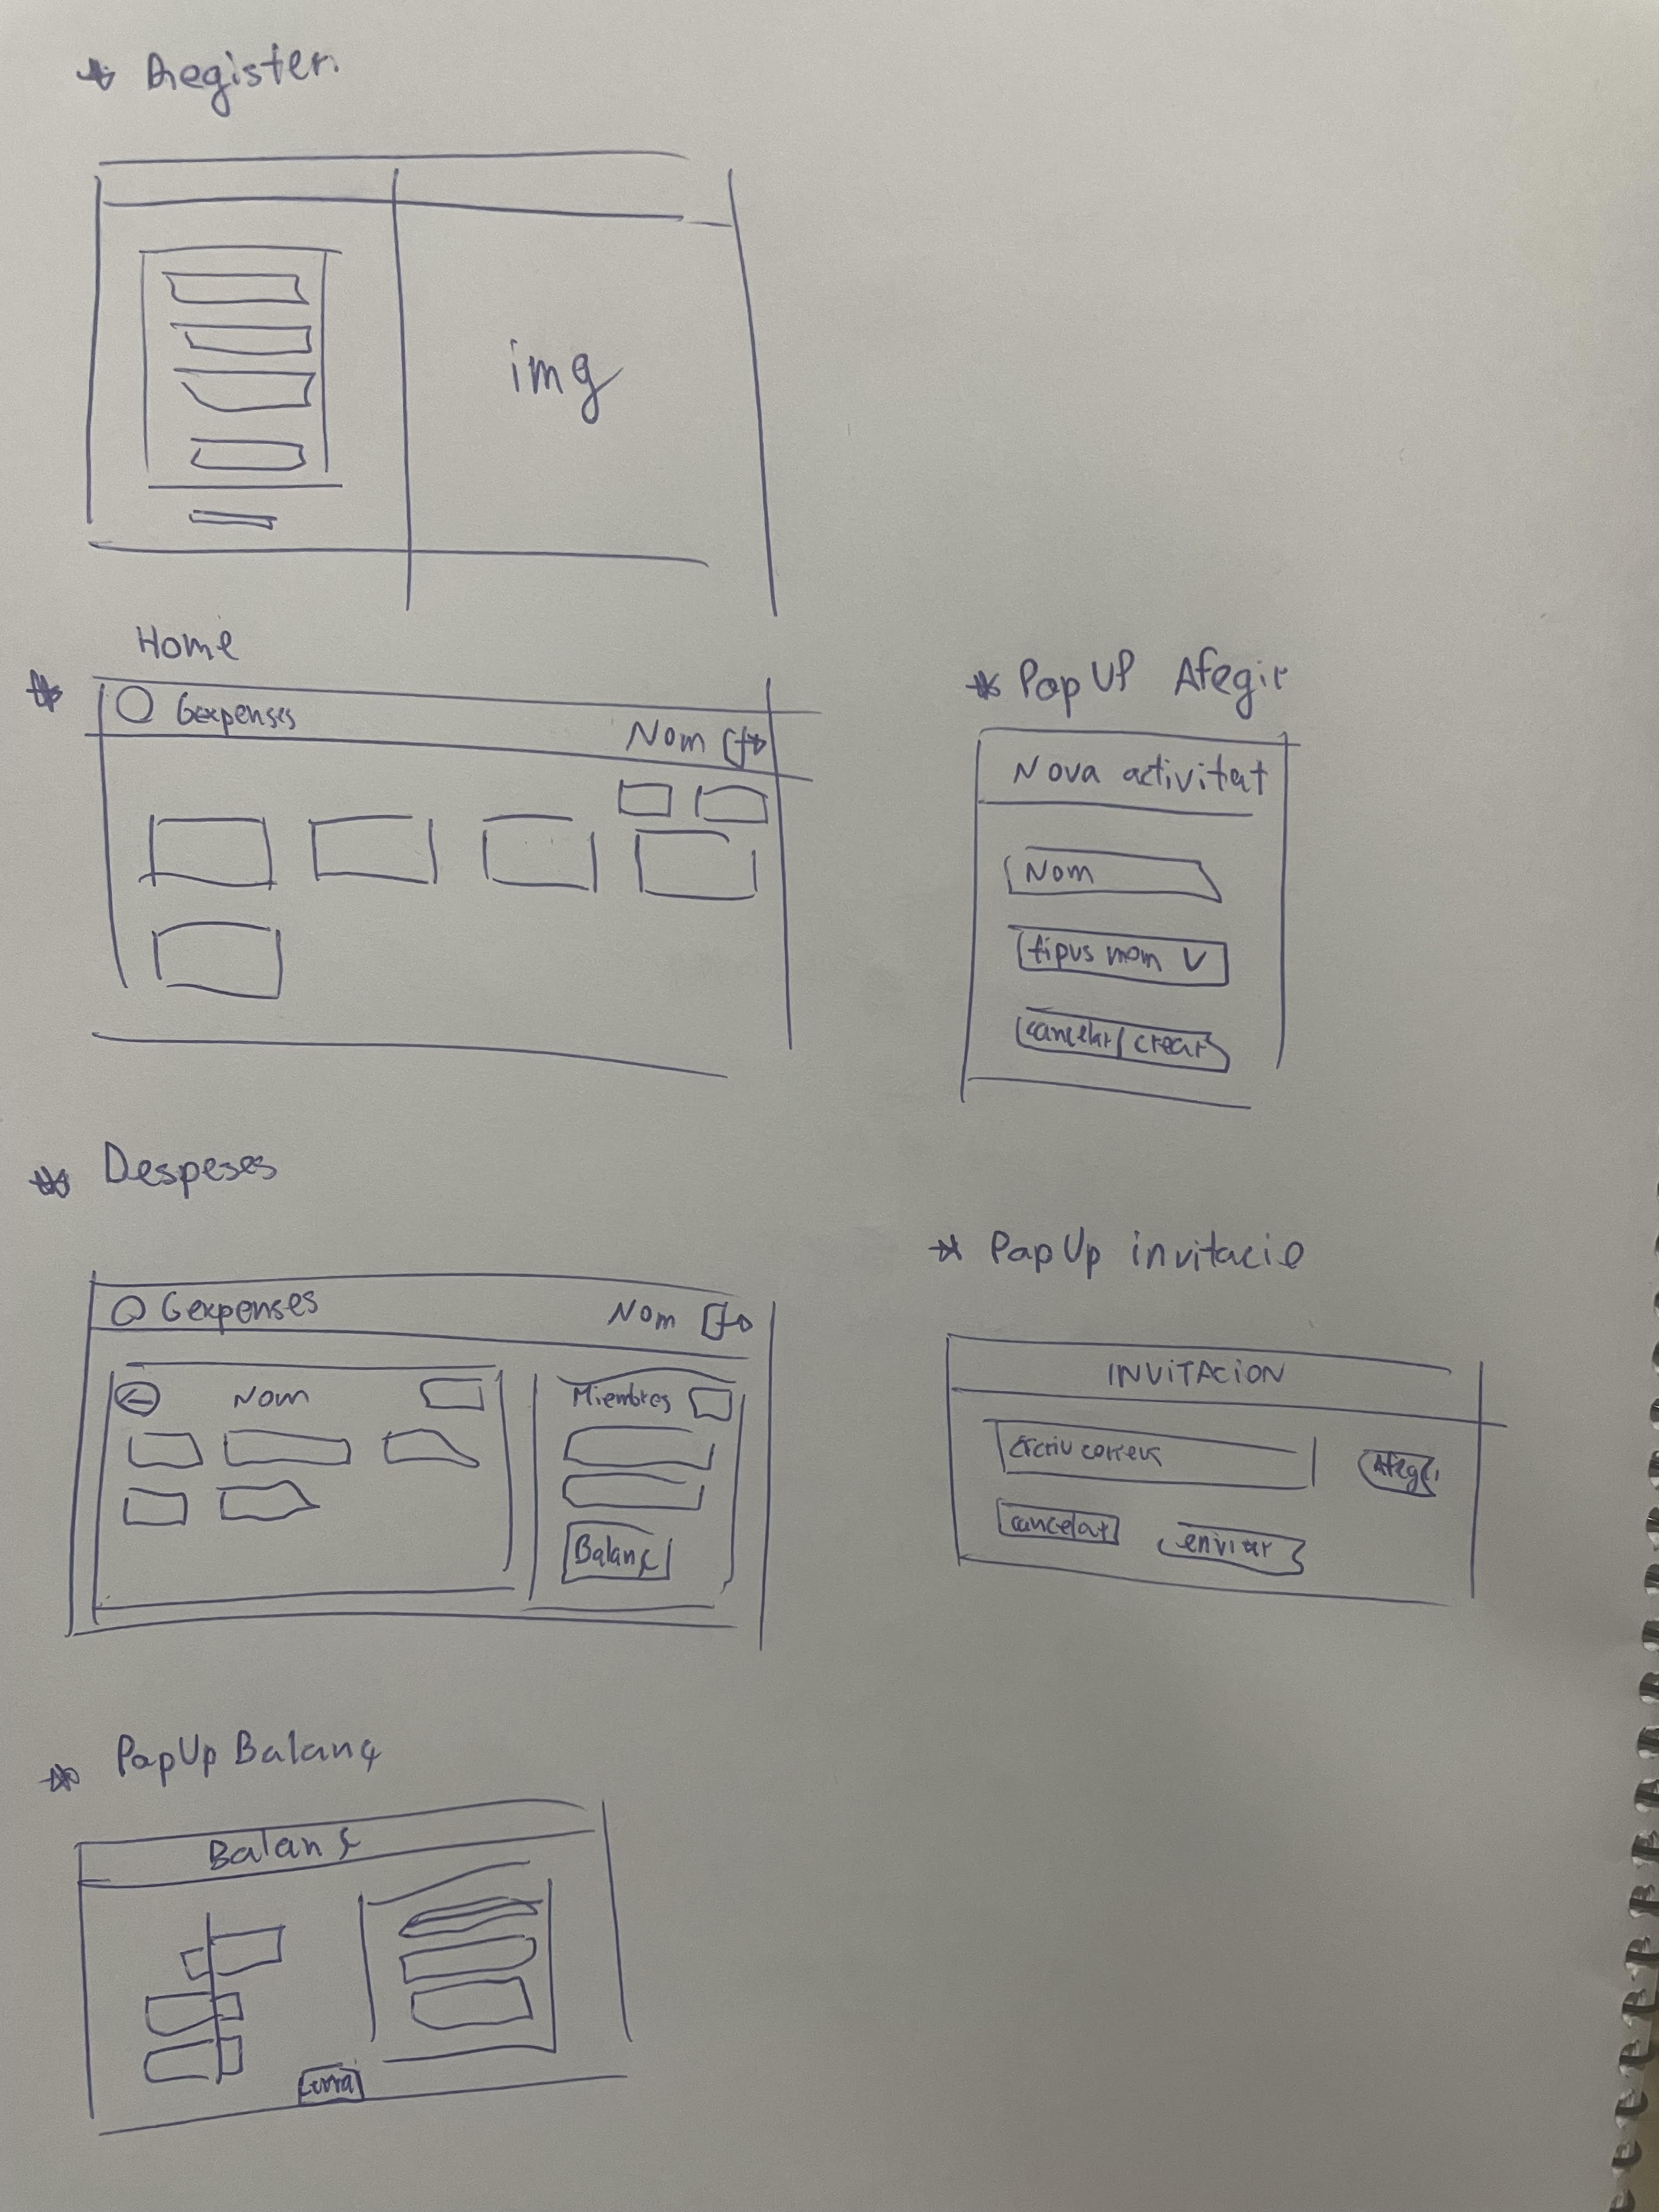 Register
img
Home
Gexpenses
Nom
PopUP Afegir
Nova activitat
Nom
tipus mom
cancelar
crear
Despeses
Gexpenses
Nom
Nom
Miembres
Balanç
PopUp invitacio
INVITACION
Escriu correus
Afegi
cancelar
enviar
PopUp Balanç
Balanç